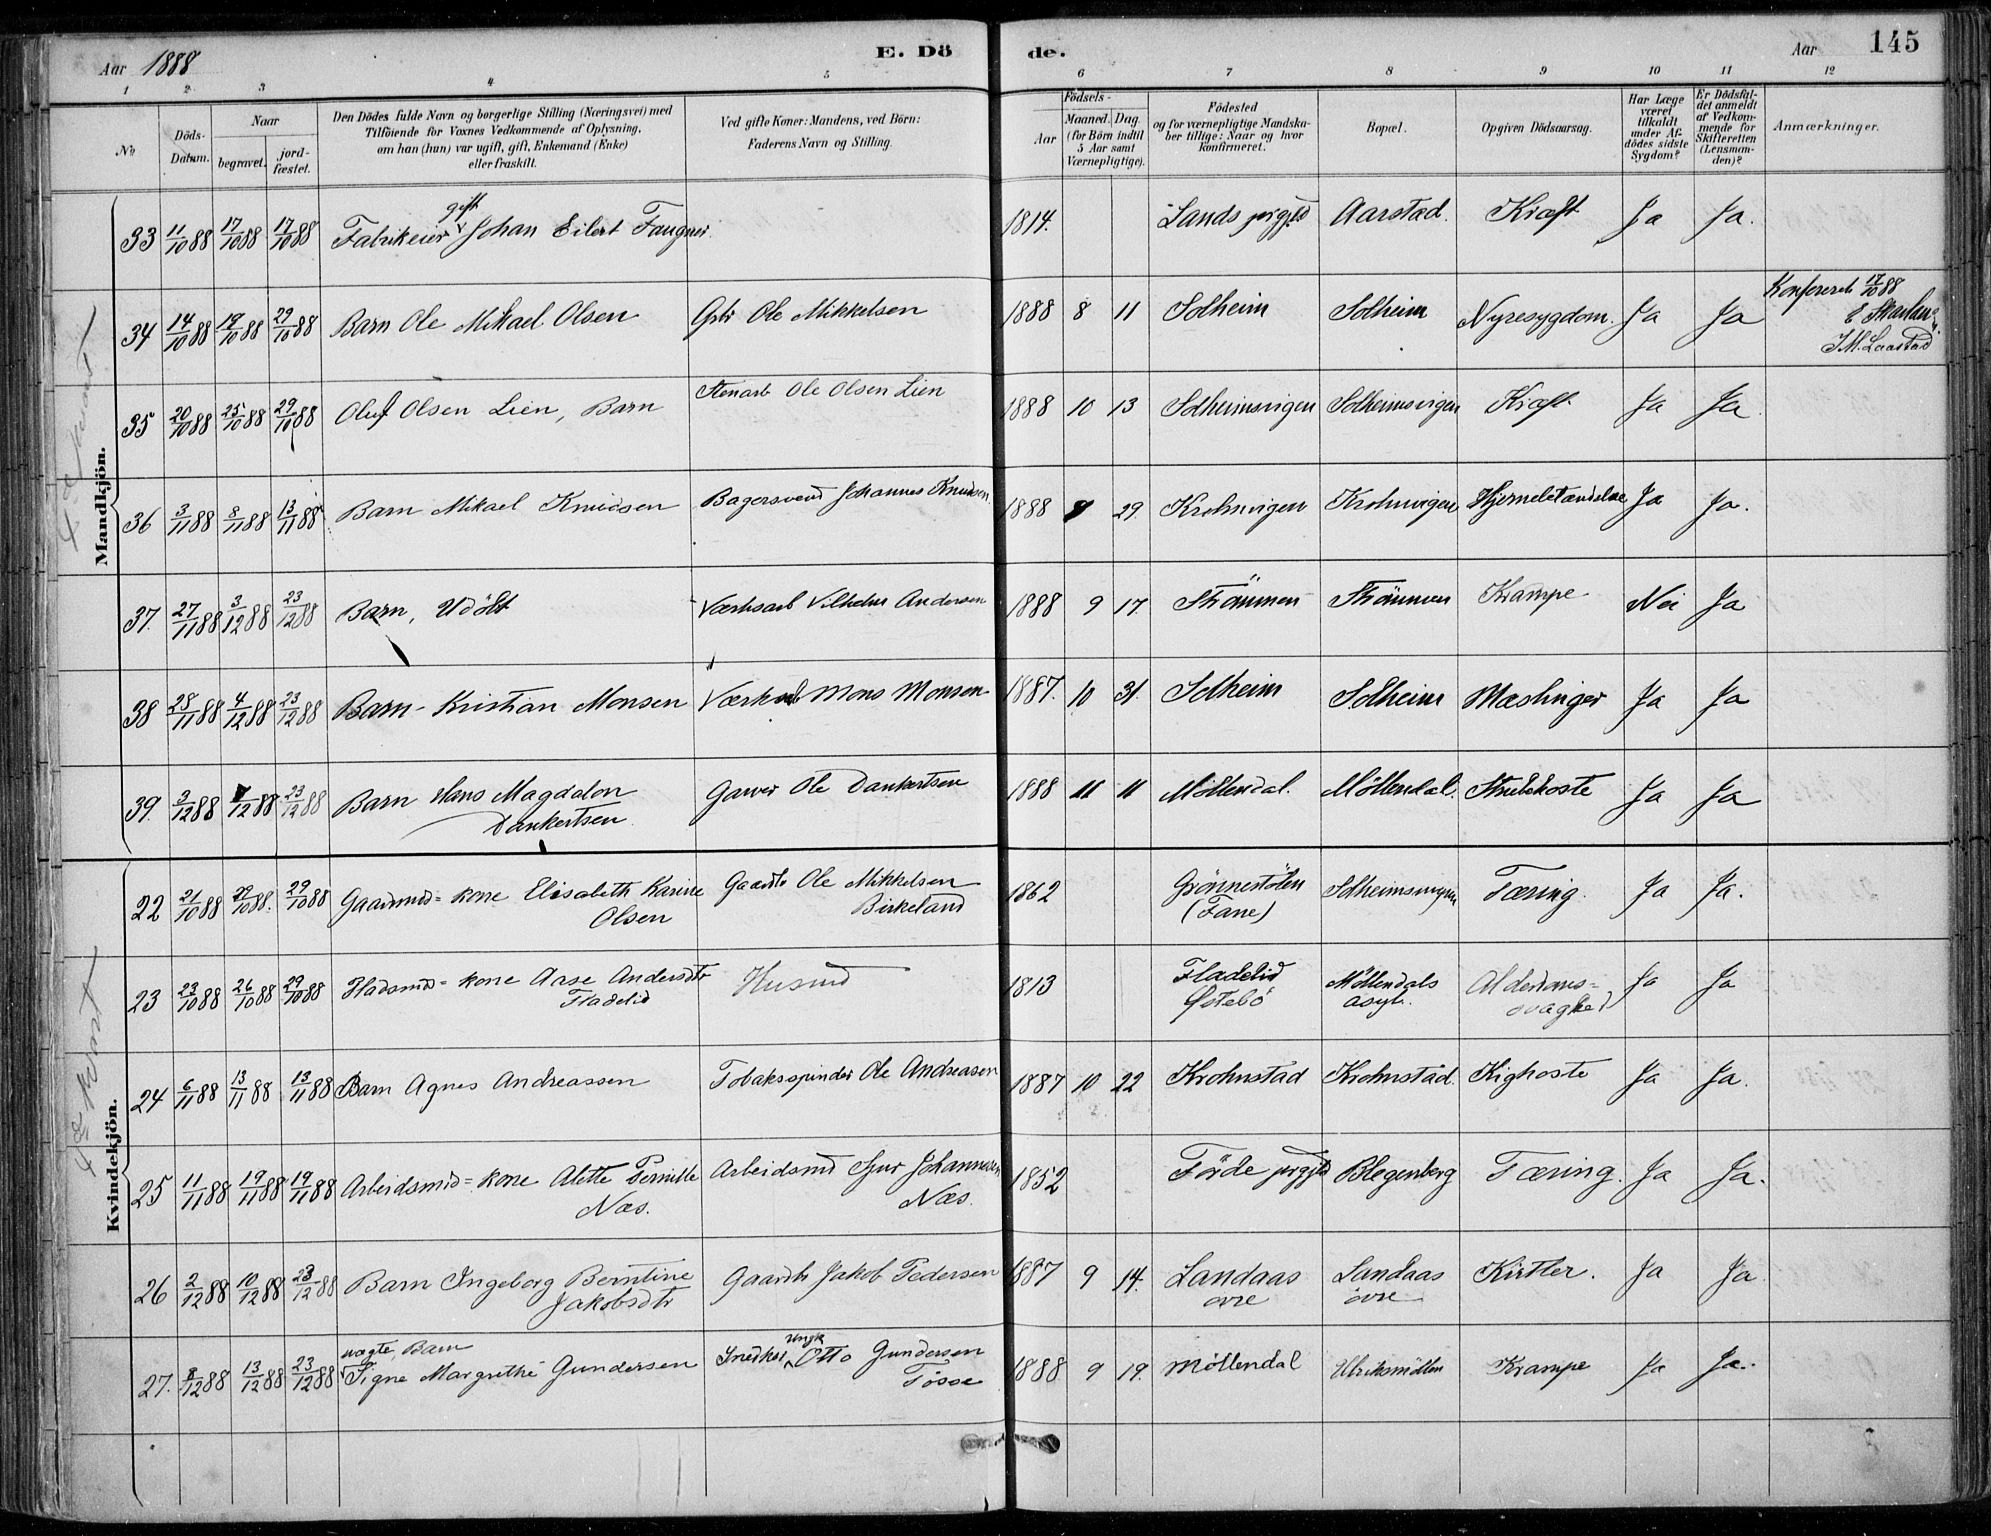 Aar 1888 E. Dö de. Aar 145
1 2 3 4 5 6 7 8 9 10 11 12
No
Döds-Datum.
Naar
begravet.
jord-fæstet.
Den Dödes fulde Navn og borgerlige Stilling (Næringsvei) med
Tilföiende for Voxnes Vedkommende af Oplysning,
om han (hun) var ugift, gift, Enkemand (Enke)
eller fraskilt.
Ved gifte Koner: Mandens, ved Börn:
Faderens Navn og Stilling.
Födsels-
Aar
Maaned. Dag
(for Börn indtil
5 Aar samt
Værnepligtige).
Födested
og for værnepligtige Mandska-
ber tillige: Naar og hvor
konfirmeret.
Bopæl.
Opgiven Dödsaarsag.
Har Læge
været
tilkaldt
under Af-
dödes sidste
Sygdom?
Er Dödsfal-
det anmeldt
af Vedkom-
mende for
Skifteretten
(Lensman-
den)?
Anmærkninger.
Mandkjön.
33 11/10 88 17/10 88 17/10 88 Fabrikeier gift Johan Eilert Faugner. 1814. Lands prgjld Aarstad. Kræft Ja Ja.
34 14/10 88 19/10 88 29/10 88 Barn Ole Mikael Olsen Gbr Ole Mikkelsen 1888 8 11 Solheim Solheim Nyresygdom. Ja Ja Konfereret 17/10 88
J.M. Laastad
35 20/10 88 25/10 88 29/10 88 Oluf Olsen Lien, Barn Stenarb Ole Olsen Lien 1888 10 13 Solheimsvigen Solheimsvigen Kræft Ja Ja
36 3/11 88 8/11 88 13/11 88 Barn Mikael Knudsen Bagersvend Johannes Knudsen 1888 29. Krohnvigen Krohnvigen Hjernebetændelse Ja Ja.
37. 27/11 88 3/12 88 23/12 88 Barn, Udöbt Værksarb Vilhelm Andersen 1888 9 17. Strömmen Strömmen Krampe Nei Ja
38 28/11 88 4/12 88 23/12 88 Barn - Kristian Monsen Værksarb Mons Monsen 1887. 10 31. Solheim Solheim Mæslinger Ja Ja
39. 3/12 88 /12 88 23/12 88 Barn Hans Magdalon
Dankertsen Garver Ole Dankertsen 1888 11 11 Möllendal. Möllendal. Strubehoste Ja Ja
Kvindekjön.
22 21/10 88 29/10 88. 29/10 88 Gaardmd = kone Elisabeth Karine
Olsen Gaardbr Ole Mikkelsen
Birkeland 1862 Grönnestölen
(Fane) Solheimsmyren Tæring. Ja Ja.
23 23/10 88 26/10 88 29/10 88 Pladsmd = kone Aase Andersdtr
Fladelid Husmd 1813 Fladelid
Östebö Möllendals
asyl. Alderdoms=
svaghed Ja Ja
24 6/11 88 13/11 88 13/11 88 Barn Agnes Andreassen Tobaksspinder Ole Andreasen 1887 10 22 Krohnstad Krohnstad. Kighoste Ja Ja.
25 11/11 88 19/11 88 19/11 88 Arbeidsmd = kone Alette Pernille
Næs. Arbeidsmd Sjur Johannesen
Næs. 1852 Förde prgjld Blegenberg Tæring. Ja Ja.
26 2/12 88 10/12 88 23/12 88 Barn Ingeborg Berntine
Jakobsdtr Gaardbr Jakob Pedersen 1887 9 14. Landaas
övre Landaas
övre Kirtler. Ja Ja
27. 8/12 88 13/12 88 23/12 88 uægte Barn
Signe Margrethe Gundersen Snedker Ungk Otto Gundersen
Tösse 1888 9 19. Möllendal Ulriksmöllen Krampe Ja Ja.